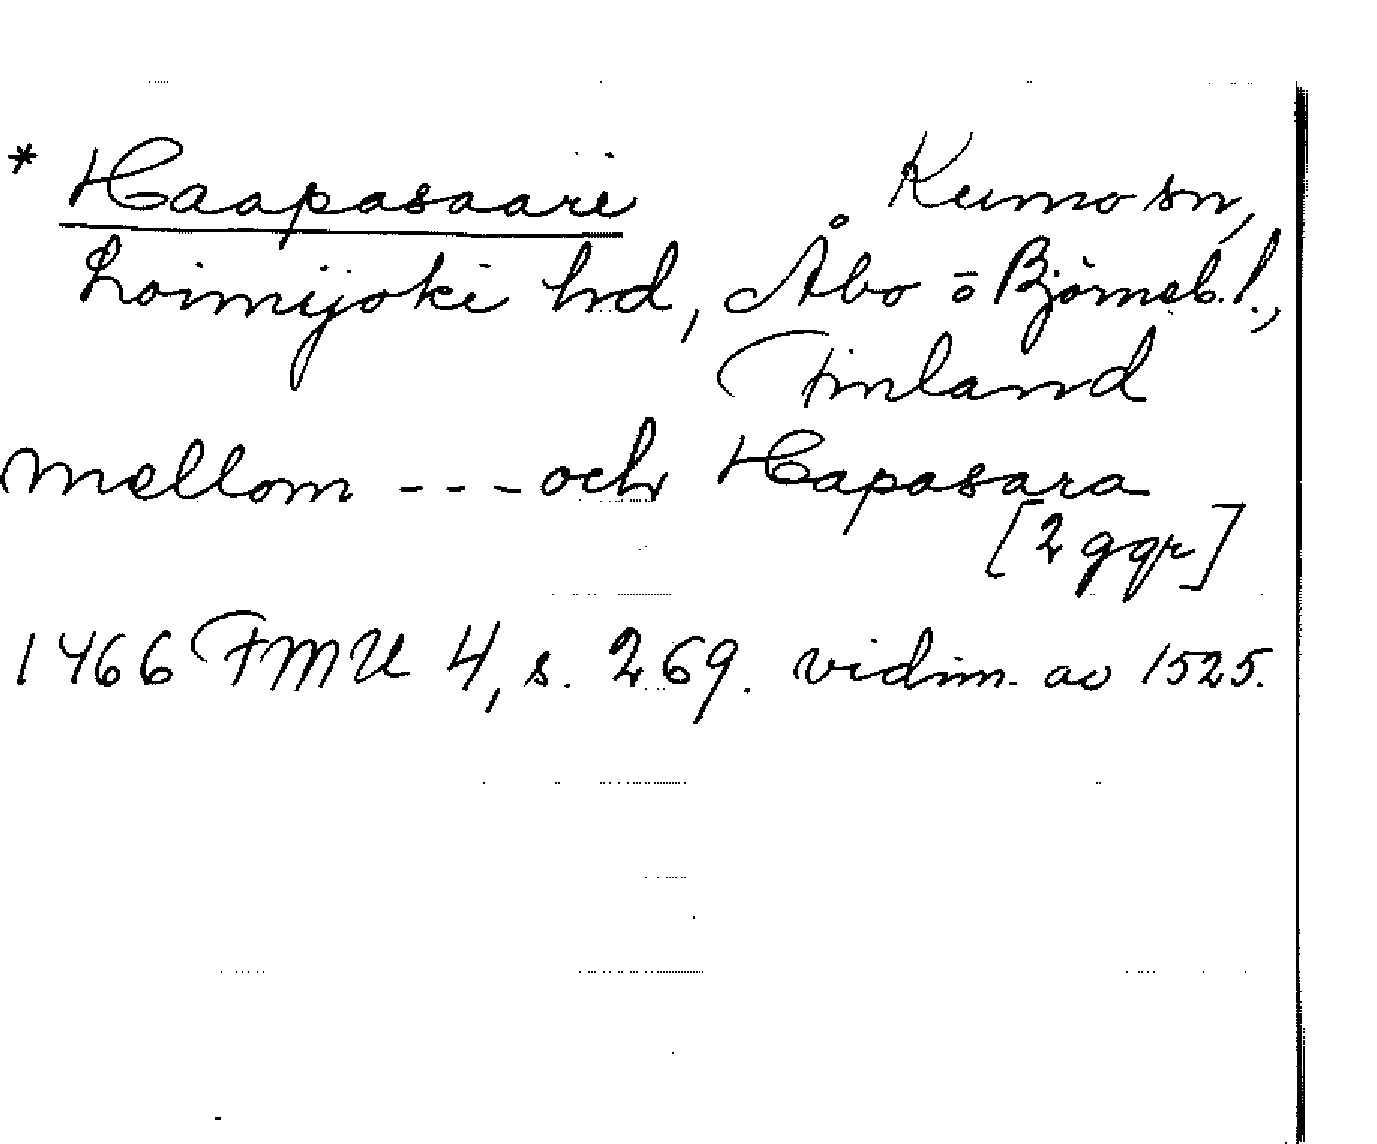 * Haapasaari Kumo sn,
Loimijoki hd, Åbo o Björneb. l.,
Finland
mellom - - - och Hapasara
[2 ggr]
1466 FMU 4, s. 269. vidim. av 1525.